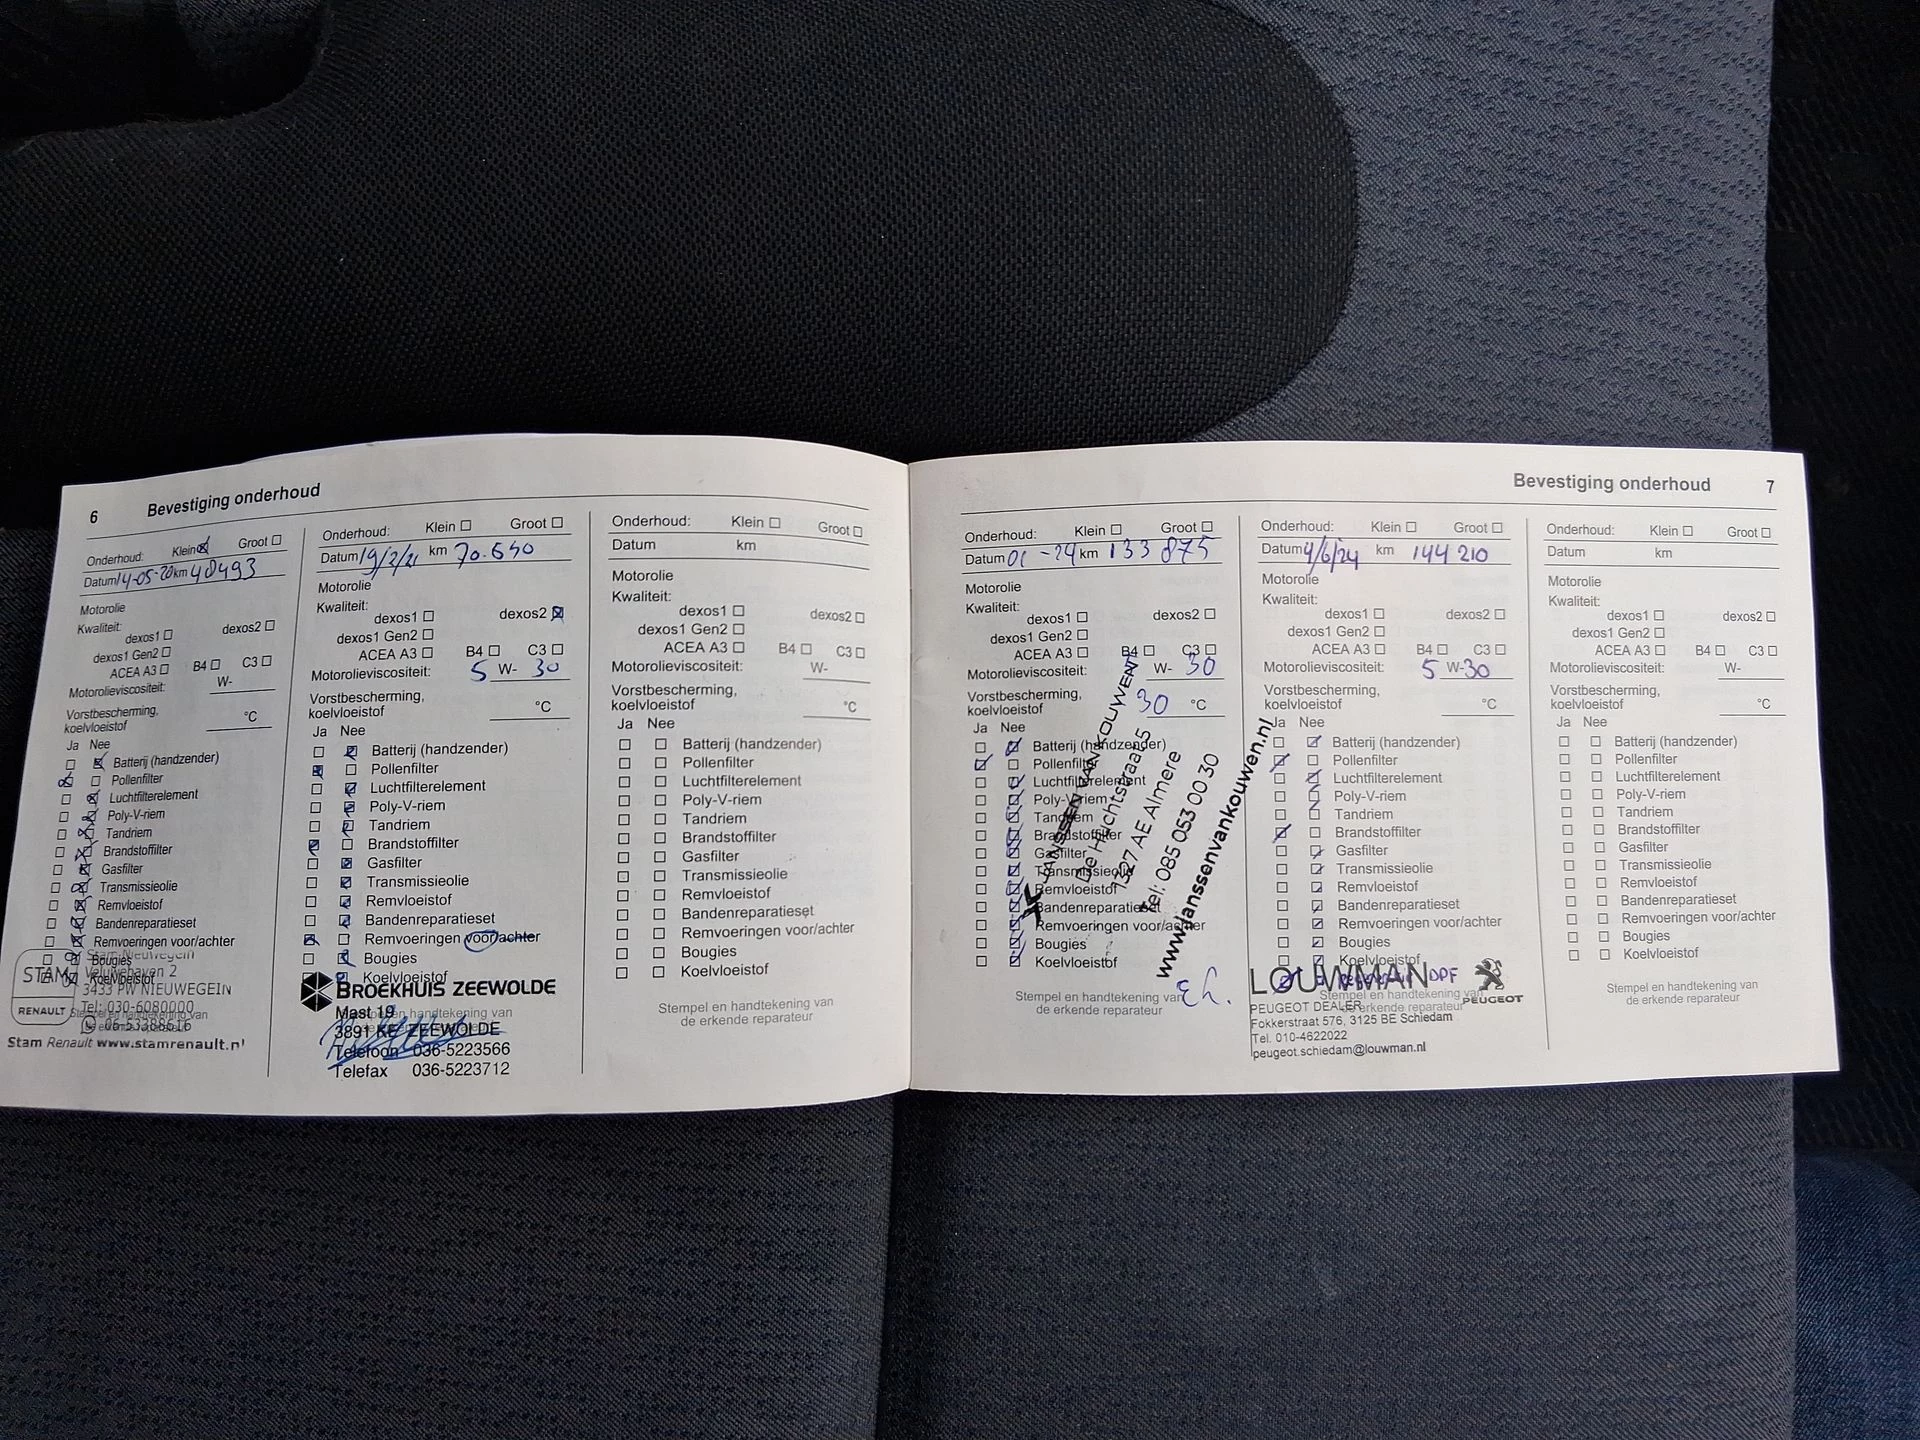 6 Bevestiging onderhoud
Onderhoud: Klein Groot
Datum 14-05-20 km 40493
Motorolie
Kwaliteit:
dexos1 dexos2
dexos1 Gen2
ACEA A3 B4 C3
Motorolieviscositeit: W-
Vorstbescherming,
koelvloeistof °C
Ja Nee
Batterij (handzender)
Pollenfilter
Luchtfilterelement
Poly-V-riem
Tandriem
Brandstoffilter
Gasfilter
Transmissieolie
Remvloeistof
Bandenreparatieset
Remvoeringen voor/achter
Bougies
Koelvloeistof
STAM
RENAULT
Stam Nieuwegein
Veluwehaven 2
3433 PW NIEUWEGEIN
Tel: 030-6080000
06-53388616
Stam Renault www.stamrenault.nl
Onderhoud: Klein Groot
Datum 19/2/21 km 70.650
Motorolie
Kwaliteit:
dexos1 dexos2
dexos1 Gen2
ACEA A3 B4 C3
Motorolieviscositeit: 5 W- 30
Vorstbescherming,
koelvloeistof °C
Ja Nee
Batterij (handzender)
Pollenfilter
Luchtfilterelement
Poly-V-riem
Tandriem
Brandstoffilter
Gasfilter
Transmissieolie
Remvloeistof
Bandenreparatieset
Remvoeringen voor/achter
Bougies
Koelvloeistof
BROEKHUIS ZEEWOLDE
Mast 19
3891 KE ZEEWOLDE
Telefoon 036-5223566
Telefax 036-5223712
Onderhoud: Klein Groot
Datum km
Motorolie
Kwaliteit:
dexos1 dexos2
dexos1 Gen2
ACEA A3 B4 C3
Motorolieviscositeit: W-
Vorstbescherming,
koelvloeistof °C
Ja Nee
Batterij (handzender)
Pollenfilter
Luchtfilterelement
Poly-V-riem
Tandriem
Brandstoffilter
Gasfilter
Transmissieolie
Remvloeistof
Bandenreparatieset
Remvoeringen voor/achter
Bougies
Koelvloeistof
Stempel en handtekening van
de erkende reparateur
Bevestiging onderhoud 7
Onderhoud: Klein Groot
Datum 01 -24 km 133 875
Motorolie
Kwaliteit:
dexos1 dexos2
dexos1 Gen2
ACEA A3 B4 C3
Motorolieviscositeit: W- 30
Vorstbescherming,
koelvloeistof 30 °C
Ja Nee
Batterij (handzender)
Pollenfilter
Luchtfilterelement
Poly-V-riem
Tandriem
Brandstoffilter
Gasfilter
Transmissieolie
Remvloeistof
Bandenreparatieset
Remvoeringen voor/achter
Bougies
Koelvloeistof
Stempel en handtekening van
de erkende reparateur
JANSSEN VAN KOUWEN
1327 AE Almere
Tel: 085 053 00 30
www.Janssenvankouwen.nl
Onderhoud: Klein Groot
Datum 4/6/24 km 144 210
Motorolie
Kwaliteit:
dexos1 dexos2
dexos1 Gen2
ACEA A3 B4 C3
Motorolieviscositeit: 5 W-30
Vorstbescherming,
koelvloeistof °C
Ja Nee
Batterij (handzender)
Pollenfilter
Luchtfilterelement
Poly-V-riem
Tandriem
Brandstoffilter
Gasfilter
Transmissieolie
Remvloeistof
Bandenreparatieset
Remvoeringen voor/achter
Bougies
Koelvloeistof
DPF
LOUWMAN PEUGEOT
PEUGEOT DEALER
Fokkerstraat 576, 3125 BE Schiedam
Tel. 010-4622022
peugeot.schiedam@louwman.nl
Onderhoud: Klein Groot
Datum km
Motorolie
Kwaliteit:
dexos1 dexos2
dexos1 Gen2
ACEA A3 B4 C3
Motorolieviscositeit: W-
Vorstbescherming,
koelvloeistof °C
Ja Nee
Batterij (handzender)
Pollenfilter
Luchtfilterelement
Poly-V-riem
Tandriem
Brandstoffilter
Gasfilter
Transmissieolie
Remvloeistof
Bandenreparatieset
Remvoeringen voor/achter
Bougies
Koelvloeistof
Stempel en handtekening van
de erkende reparateur